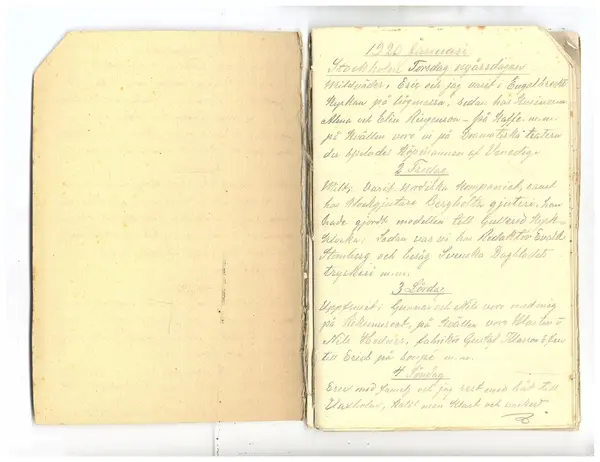 1920 Januari
Stockholm Torsdag nyårsdagen
Mildväder, Eric och jag varit i Engelbrekts
Kyrkan på högmessa, sedan hos kusinerna
Alma och Elin - på Kaffe m.m.
på Kvällen voro vi på Dramatiska teatern
der spelades Köpmannen af Venedig.
2 Fredag
Milt, varit Nordiska Kompaniet, samt
hos Klockgjutare Bergholtz gjuteri, han
hade gjordt modellen till Gullered Kyrk-
klocka. Sedan var vi hos Redaktör Evald
Stomberg och besåg Svenska Dagbladets
tryckeri m.m.
3 Lördag
Uppfruset, Gunnar och Nils voro med mig
på , på Kvällen voro
Nils Hedner, fabrikör Gustaf Klarson o fru
till Erics på Soupé m.m.
4 Söndag
Eric med familj och jag rest med båt till
Vaxholm, kallt men klart och vackert